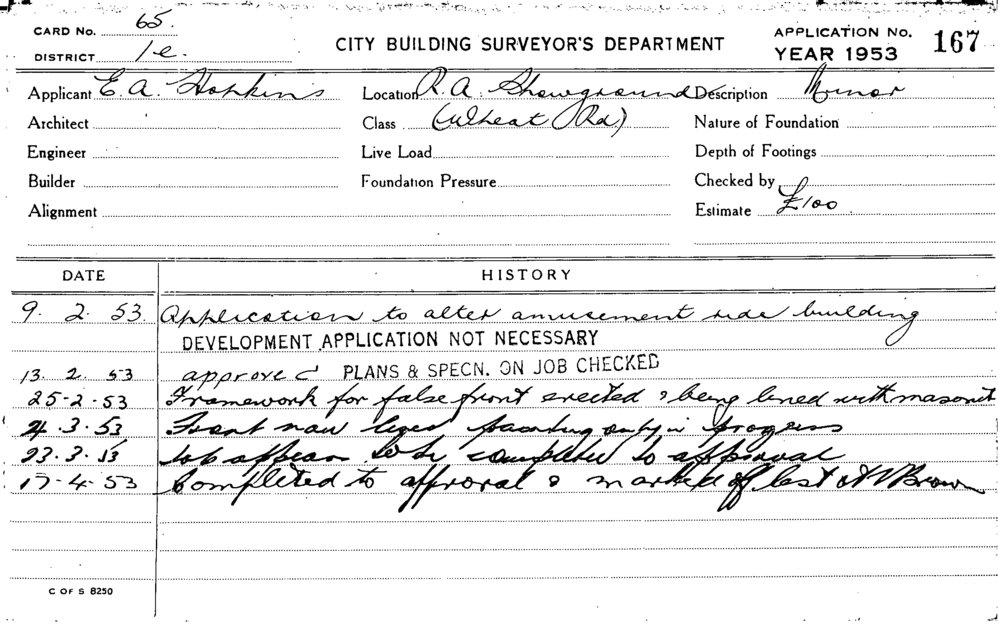 CARD No. 65.
DISTRICT 1e.
CITY BUILDING SURVEYOR'S DEPARTMENT
APPLICATION No. 167
YEAR 1953
Applicant E. A. Hopkins Location R. A. Showground Description Minor
Architect Class (Wheat Rd) Nature of Foundation
Engineer Live Load Depth of Footings
Builder Foundation Pressure Checked by
Alignment Estimate £100
DATE HISTORY
9. 2. 53. Application to alter amusement ride building
DEVELOPMENT APPLICATION NOT NECESSARY
13. 2. 53 approved PLANS & SPECN. ON JOB CHECKED
25-2-53 Framework for false front erected & being lined with masonit
4.3.53 Front now lined painting only in progress
23.3.53 Job appears to be completed to approval
17-4-53 Completed to approval & marked off last Brown
C OF S 8250